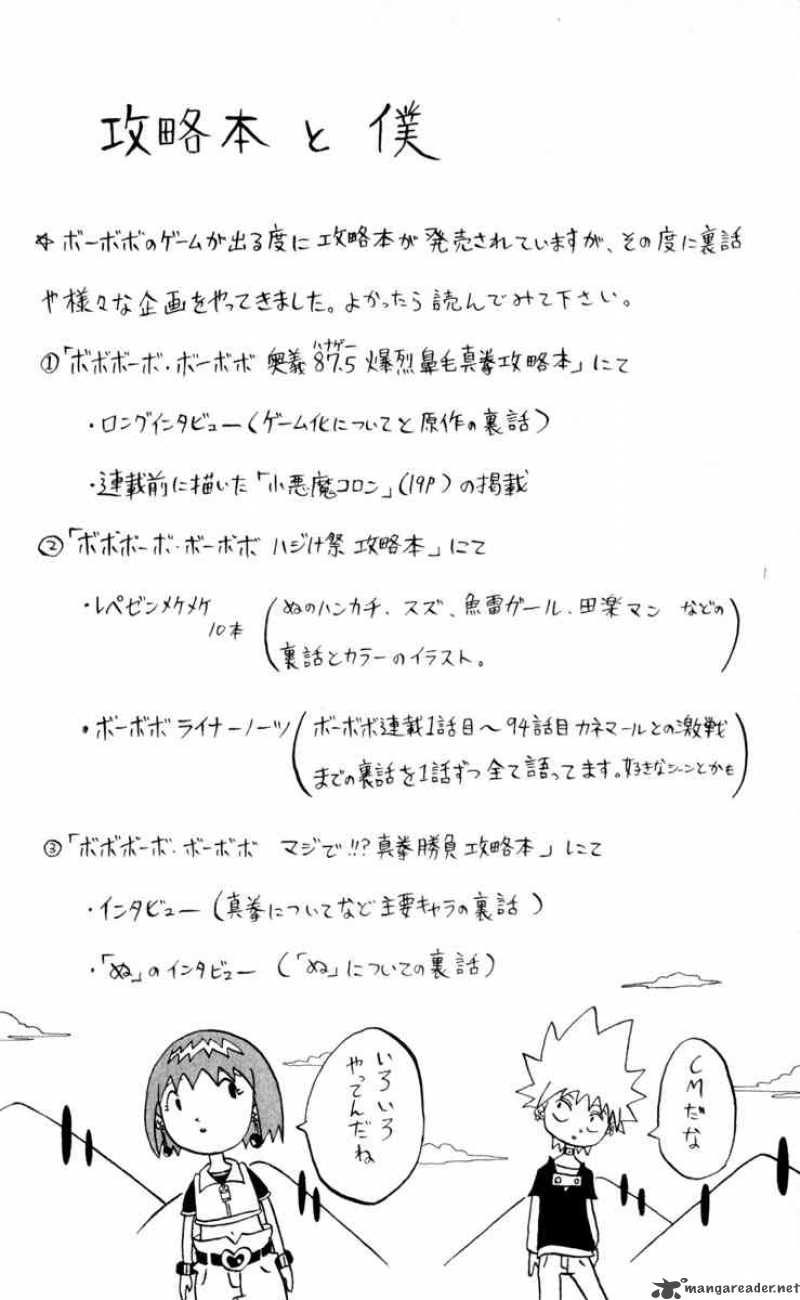 攻略本と僕
☆ ボーボボのゲームが出る度に攻略本が発売されていますが、その度に裏話
や様々な企画をやってきました。よかったら読んでみて下さい。
①「ボボボーボ・ボーボボ 奥義87.5爆烈鼻毛真拳攻略本」にて
ハナゲー
・ロングインタビュー(ゲーム化についてと原作の裏話)
・連載前に描いた「小悪魔コロン」(19P)の掲載
②「ボボボーボ・ボーボボ ハジけ祭 攻略本」にて
・レペゼンメケメケ
10本
(ぬのハンカチ、スズ、魚雷ガール、田楽マン などの
裏話とカラーのイラスト。)
・ボーボボ ライナーノーツ(ボーボボ連載1話目〜94話目カネマールとの激戦
までの裏話を1話ずつ全て語ってます。好きなシーンとかも)
③「ボボボーボ・ボーボボ マジで!!?真拳勝負 攻略本」にて
・インタビュー(真拳についてなど主要キャラの裏話)
・「ぬ」のインタビュー(「ぬ」についての裏話)
CMだな
いろいろ
やってんだね
mangareader.net